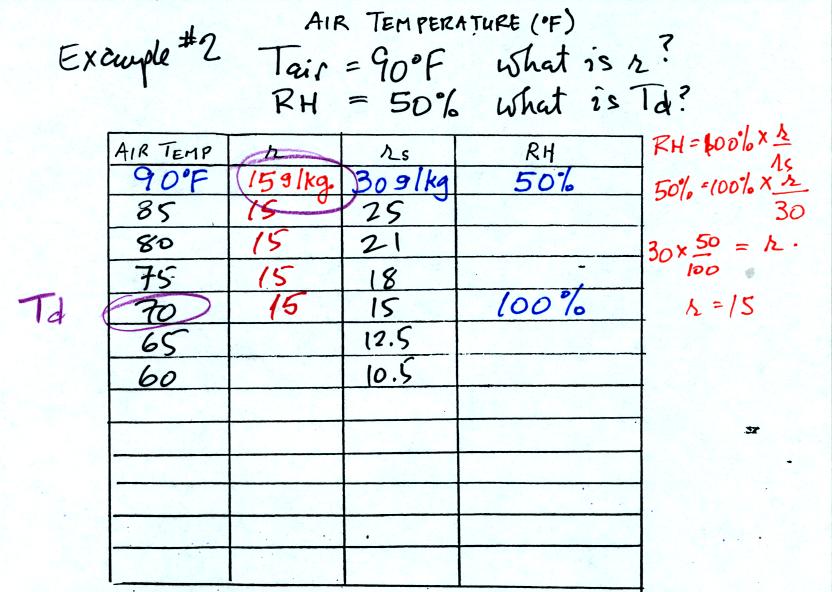 AIR TEMPERATURE (°F)
Example #2 Tair = 90°F what is r?
RH = 50% what is Td?
AIR TEMP r rs RH
90°F 15 g/kg. 30 g/kg 50%
85 15 25
80 15 21
75 15 18
Td 70 15 15 100%
65 12.5
60 10.5
RH = 100% × r/rs
50% = 100% × r/30
30 × 50/100 = r.
r = 15